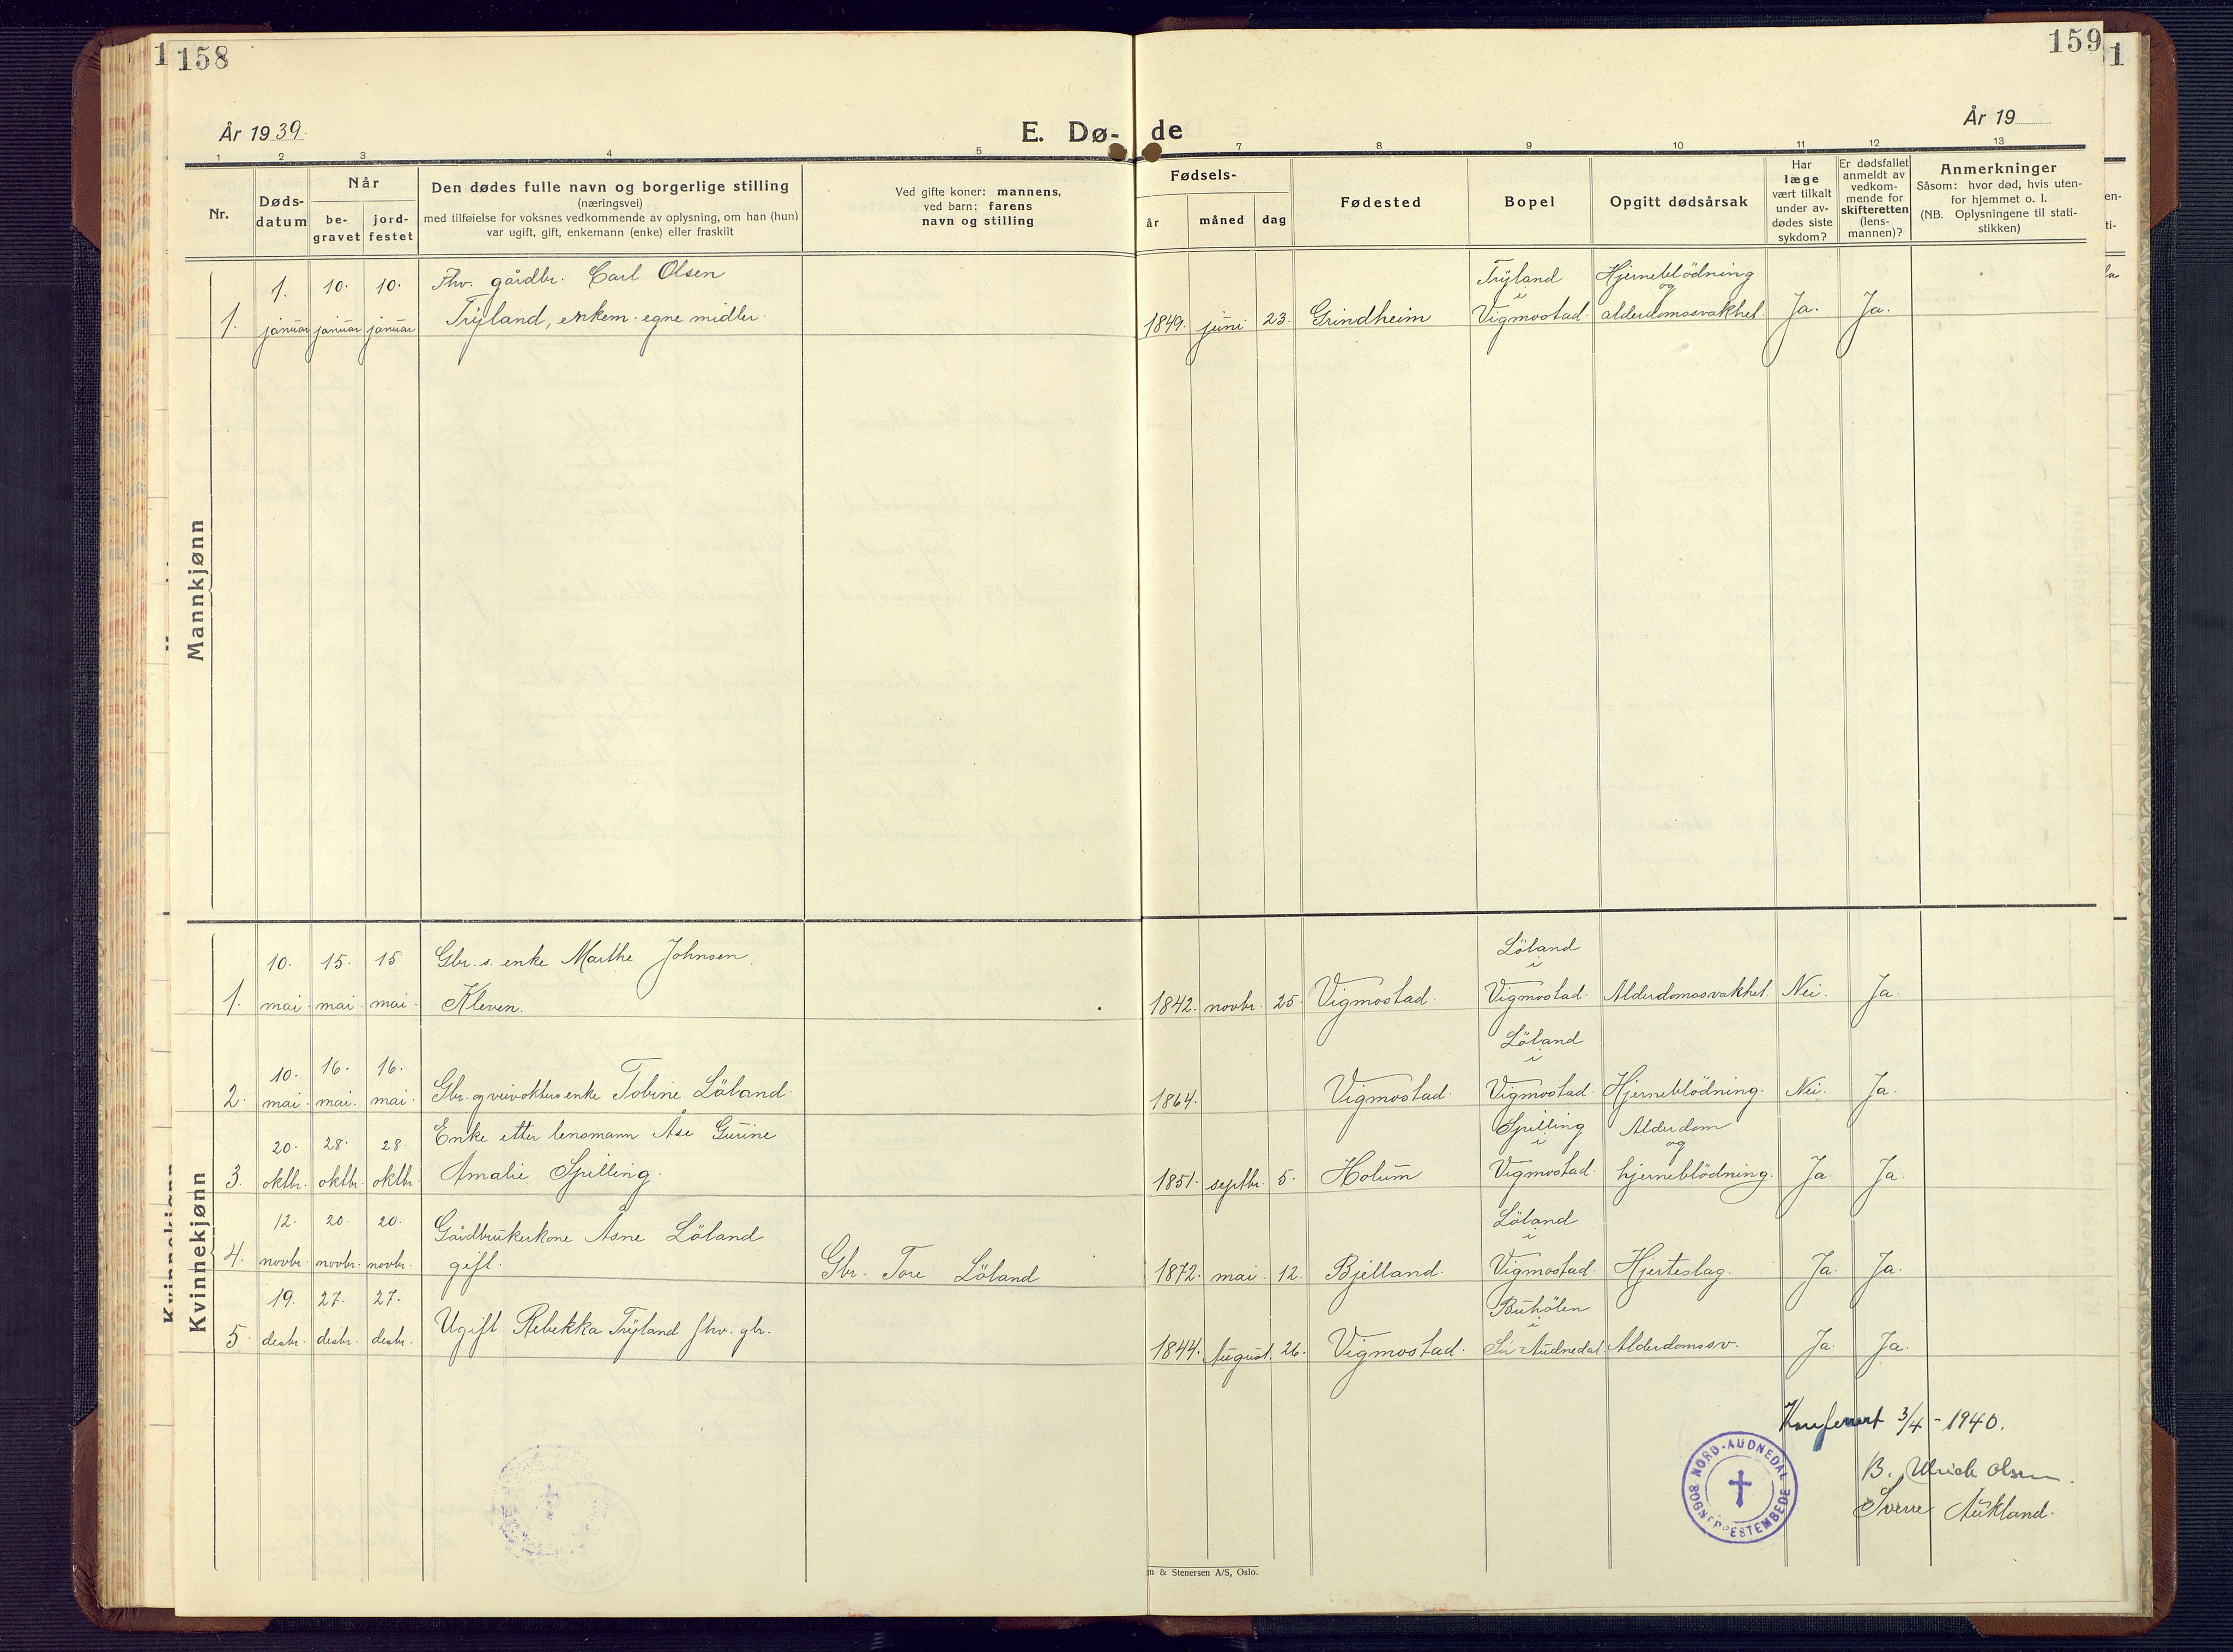 158
159
År 1939.
E. Dø-
de
År 19
1 2 3 4 5 7 8 9 10 11 12 13
Nr.
Døds-
datum
Når
be-
gravet
jord-
festet
Den dødes fulle navn og borgerlige stilling
(næringsvei)
med tilføielse for voksnes vedkommende av oplysning, om han (hun)
var ugift, gift, enkemann (enke) eller fraskilt
Ved gifte koner: mannens,
ved barn: farens
navn og stilling
Fødsels-
år måned dag
Fødested
Bopel
Opgitt dødsårsak
Har
læge
vært tilkalt
under av-
dødes siste
sykdom?
Er dødsfallet
anmeldt av
vedkom-
mende for
skifteretten
(lens-
mannen)?
Anmerkninger
Såsom: hvor død, hvis uten-
for hjemmet o. l.
(NB. Oplysningene til stati-
stikken)
Mannkjønn
1. 10. 10. Fhv. gårdbr. Carl Olsen Trÿland Hjerneblödning
i og
1. januar januar januar Trÿland, enkem. egne midler. 1849. juni 23. Grindheim Vigmostad. alderdomssvakhet. Ja. Ja.
Kvinnekjønn
10. 15. 15 Gbr. s. enke Marthe Johnsen Löland
i
1. mai. mai. mai. Kleven. 1842. novbr. 25. Vigmostad. Vigmostad. Alderdomssvakhet. Nei. Ja.
Löland
i
10. 16. 16.
2. mai. mai. mai. Gbr. og veivokters enke Tobine Löland. 1864. Vigmostad. Vigmostad. Hjerneblödning. Nei. Ja.
20. 28. 28. Enke etter lensmann Åse Gurine Spilling Alderdom
i og
3. oktbr. oktbr. oktbr. Amalie Spilling. 1851. septbr. 5. Holum Vigmostad. hjerneblödning. Ja. Ja.
12. 20. 20. Gårdbrukerkone Åsne Löland Löland
i
4. novbr. novbr. novbr. gift. Gbr. Tore Löland 1872. mai. 12. Bjelland. Vigmostad. Hjerteslag. Ja. Ja.
19. 27. 27. Ugift Rebekka Trÿland fhv. gbr. Buhölen
i
5 desbr. desbr. desbr. 1844. August. 26. Vigmostad. Sör Audnedal Alderdomssv. Ja. Ja.
Konferert 3/4 - 1940.
B. Ulrich Olsen.
Sverre Aukland.
NORD-AUDNEDAL SOGNEPRESTEMBEDE
m & Stenersen A/S, Oslo.